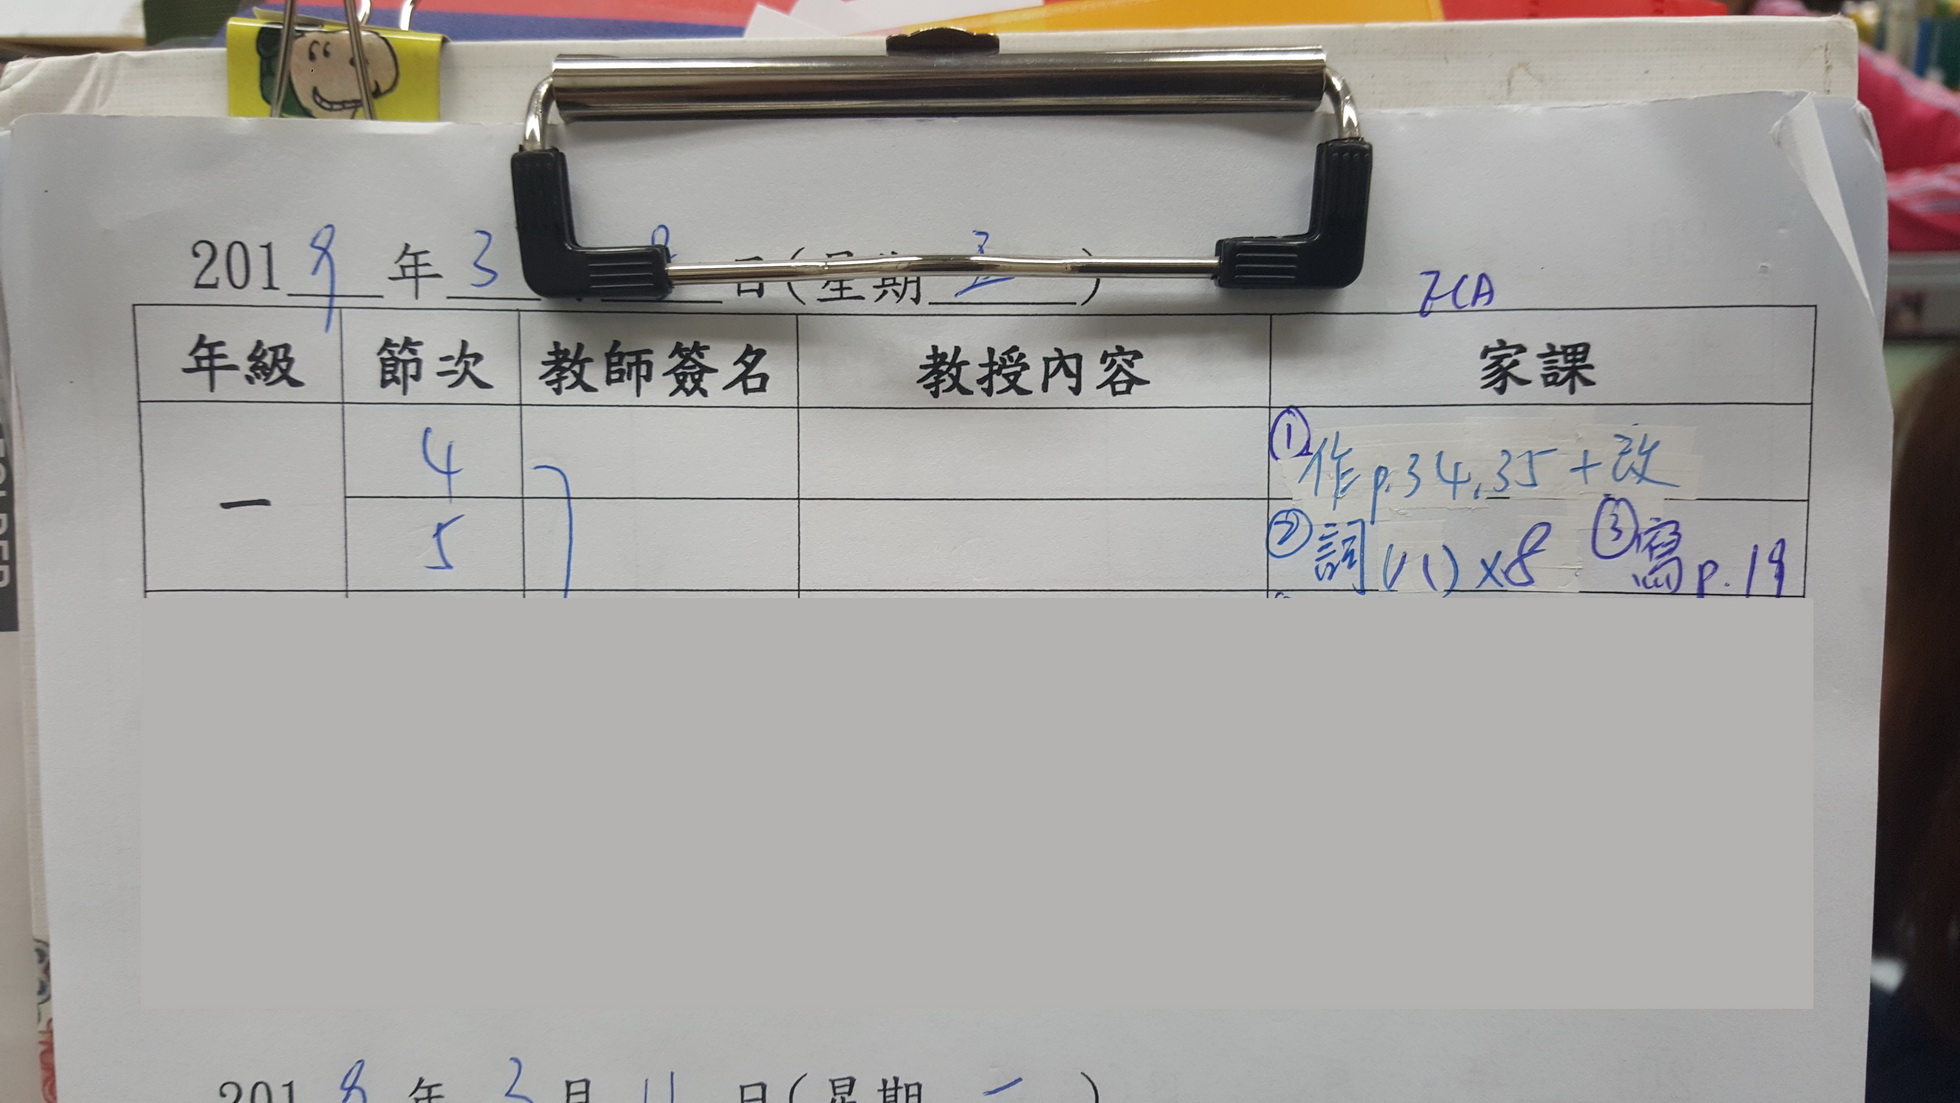 2019 年 3 日(星期 五 )
ECA
年級 節次 教師簽名 教授內容 家課
一 4 ①作p.34,35+改
5 ②詞(八)x8 ③寫p.19
201 年 3 月 11 日(星期 一 )